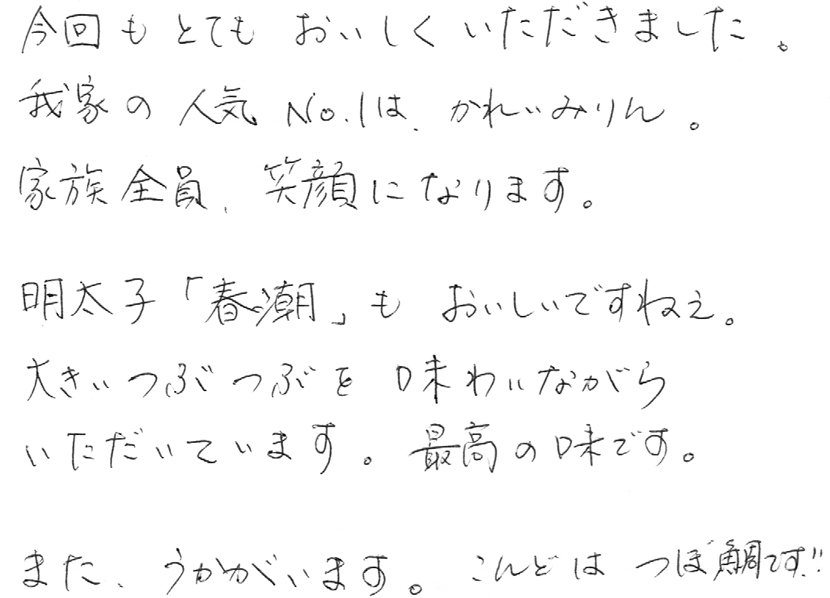 今回もとてもおいしくいただきました。
我家の人気No.1は、かれいみりん。
家族全員、笑顔になります。
明太子「春潮」もおいしいですねぇ。
大きいつぶつぶを味わいながら
いただいています。最高の味です。
また、うかがいます。こんどはつぼ鯛です!!